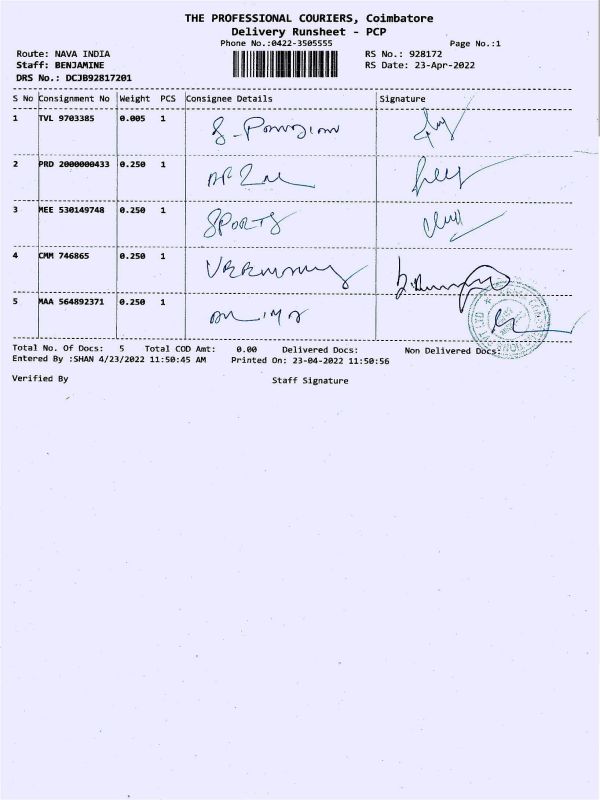 THE PROFESSIONAL COURIERS, Coimbatore
Delivery Runsheet - PCP
Phone No.:0422-3505555 Page No.:1
Route: NAVA INDIA RS No.: 928172
Staff: BENJAMINE RS Date: 23-Apr-2022
DRS No.: DCJB92817201
S No Consignment No Weight PCS Consignee Details Signature
1 TVL 9703385 0.005 1
2 PRD 2000000433 0.250 1
3 MEE 530149748 0.250 1 SPORTS
4 CMM 746865 0.250 1
5 MAA 564892371 0.250 1
Total No. Of Docs: 5 Total COD Amt: 0.00 Delivered Docs: Non Delivered Docs:
Entered By :SHAN 4/23/2022 11:50:45 AM Printed On: 23-04-2022 11:50:56
Verified By Staff Signature